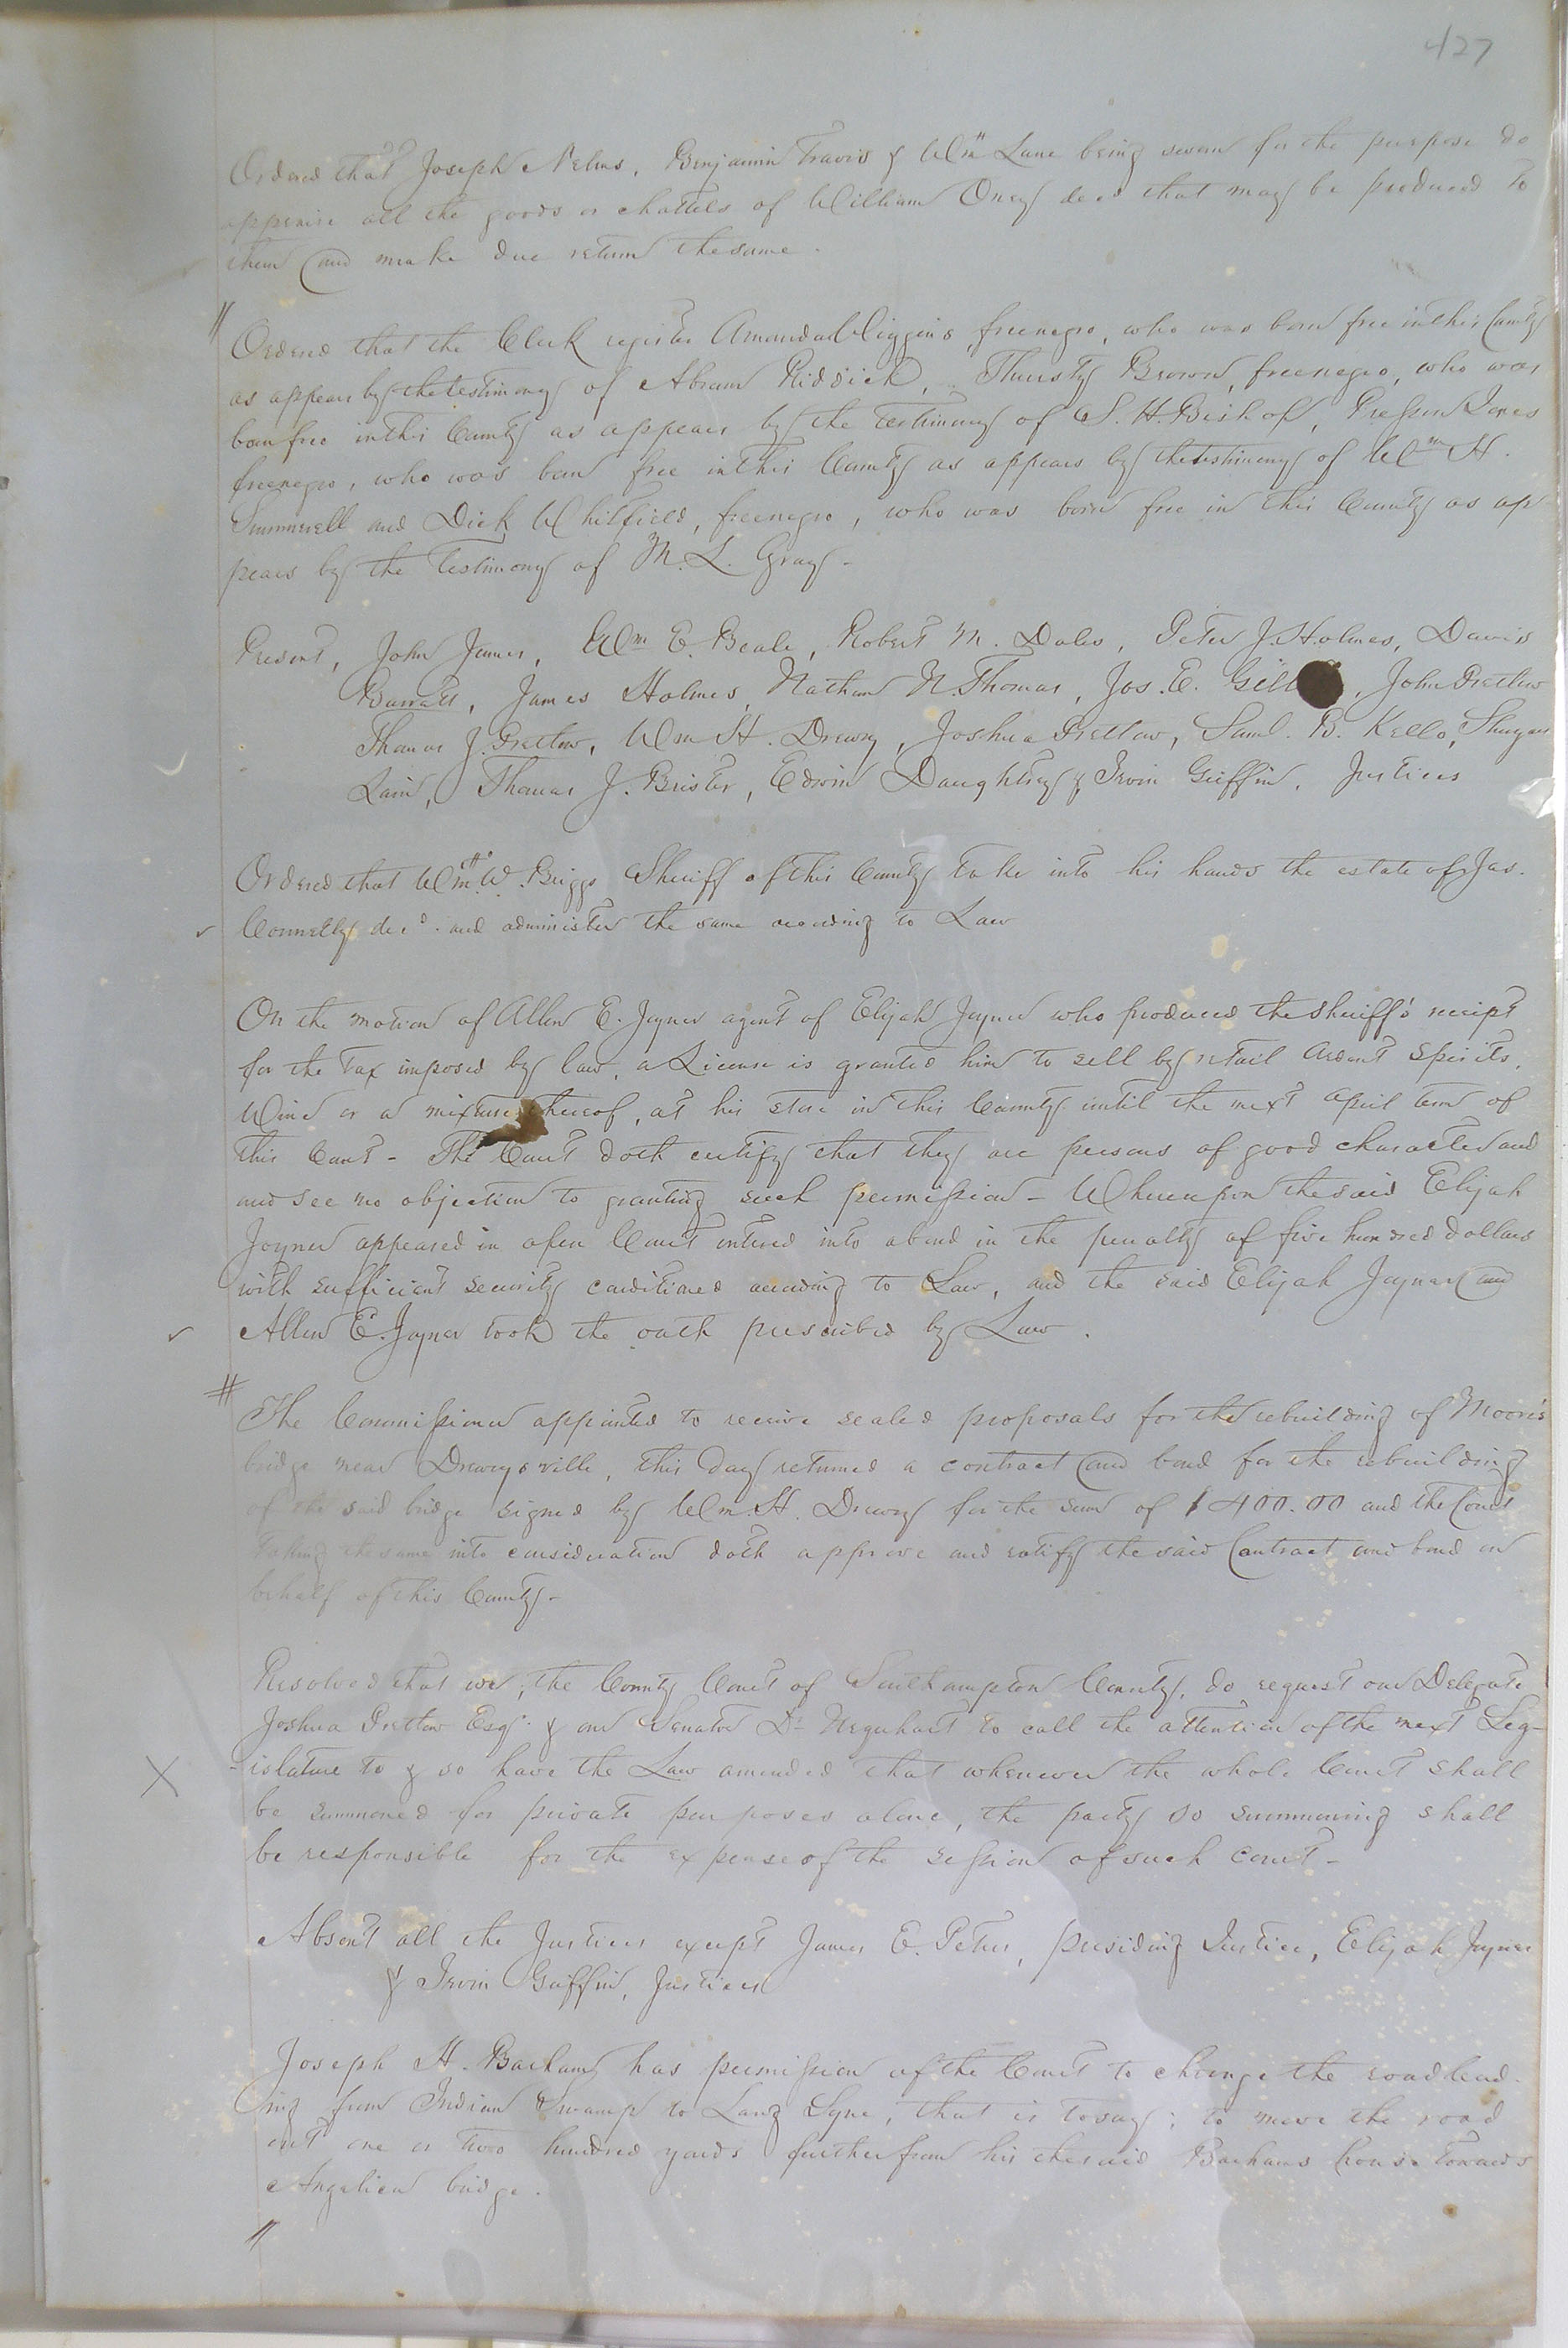 427
Ordered that Joseph Nelms, Benjamin Travis & Wm Lane being sworn for the purpose do
appraise all the goods or chattels of William Oney decd that may be produced to
them and make due return the same.
Ordered that the Clerk register Amanda Wiggins, freenegro, who was born free in this County
as appears by the testimony of Abram Riddick, Thursty Brown, freenegro, who was
born free in this County as appears by the testimony of S. H. Bishop, Jones
freenegro, who was born free in this County as appears by the testimony of Wm H.
Summerell and Dick Whitfield, freenegro, who was born free in this County as ap
pears by the testimony of M. L. Gray-
Present, John James, Wm E. Beale, Robert M. Dales, Peter J. Holmes, Davis
Barrett, James Holmes, Nathan N. Thomas, Jos. E. Gill, John Pretlow
Thomas J. Pretlow, Wm H. Drewry, Joshua Pretlow, Saml. B. Kello,
Lain, Thomas J. Brister, Edwin Daughtrey & Irvin Griffin, Justices
Ordered that Wm W. Briggs Sheriff of this County take into his hands the estate of Jas.
Connelly decd. and administer the same according to Law
On the motion of Allen E. Joyner agent of Elijah Joyner who produced the sheriff's receipt
for the Tax imposed by law, a License is granted him to sell by retail Ardent Spirits,
Wine or a mixture thereof, at his store in this County until the next April term of
this Court - The Court doth certify that they are persons of good character and
and see no objection to granting such permission - Whereupon the said Elijah
Joyner appeared in open Court entered into a bond in the penalty of five hundred dollars
with sufficient security conditioned according to Law, and the said Elijah Joyner and
Allen E. Joyner took the oath prescribed by Law.
The Commissioner appointed to receive sealed proposals for the rebuilding of Moore's
bridge near Drewrysville, this day returned a contract and bond for the rebuilding
of the said bridge signed by Wm. H. Drewry for the sum of $400.00 and the Court
taking the same into consideration doth approve and ratify the said Contract and bond on
behalf of this County-
Resolved that we, the County Court of Southampton County, do request our Delegate
Joshua Pretlow Esqr. & our Senator Dr Urquhart to call the attention of the next Leg-
-islature to & so have the Law amended that whenever the whole Court shall
be summoned for private purposes alone, the party so summoning shall
be responsible for the expense of the session of such court-
Absent all the Justices except James E. Peters, presiding Justice, Elijah Joyner
& Irvin Griffin, Justices
Joseph H. Barham has permission of the Court to change the road lead-
ing from Indian Swamp to Lang Syne, that is to say; to move the road
out one or two hundred yards further from his the said Barhams house towards
Angelico bridge.